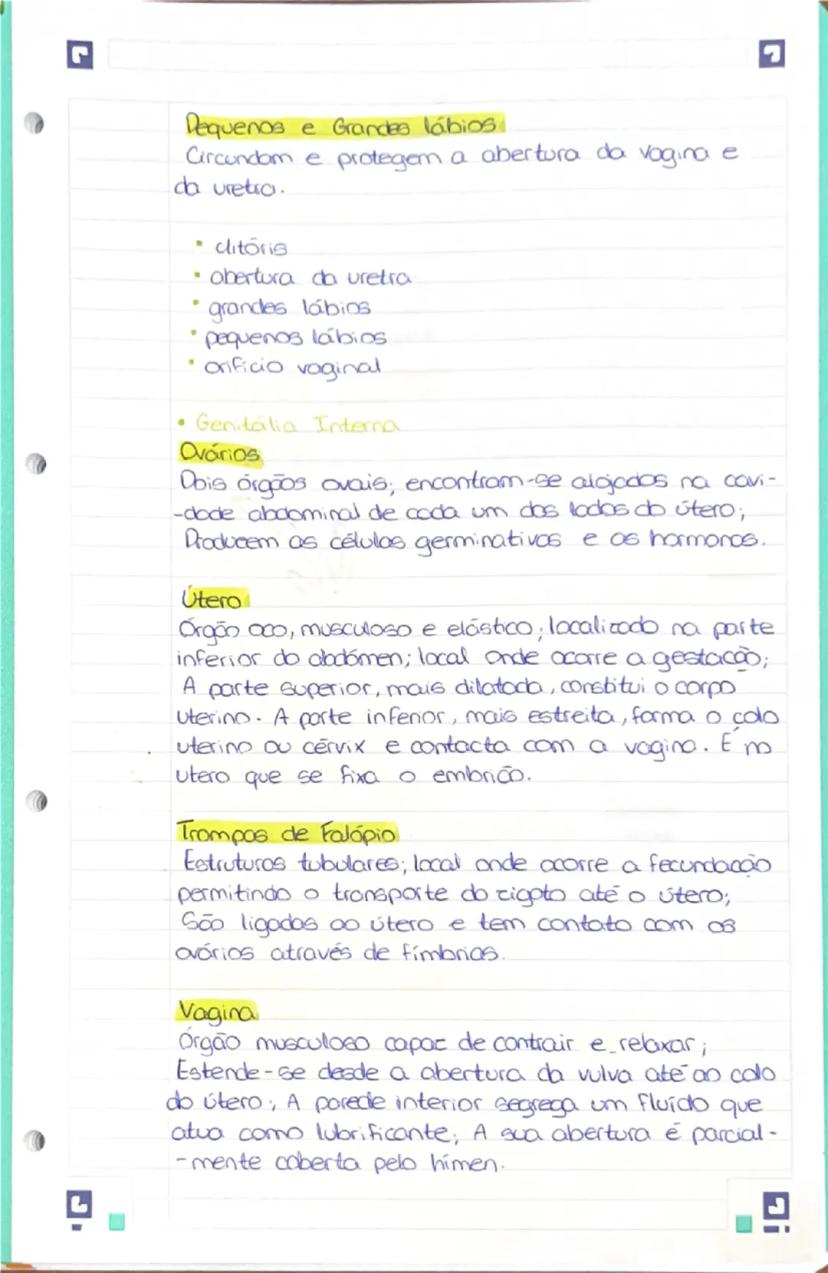 Pequenos e Grandes lábios
Circundam e protegem a abertura da vagina e
da uretra.
• clitóris
• abertura da uretra
• grandes lábios
• pequenos lábios
• orifício vaginal
• Genitália Interna
Ovários
Dois órgãos ovais; encontram-se alojados na cavi-
-dade abdominal de cada um dos lados do útero;
Producem as células germinativas e as hormonas.
Útero
Órgão oco, musculoso e elástico; localizado na parte
inferior do abdómen; local onde ocorre a gestação;
A parte superior, mais dilatada, constitui o corpo
uterino. A parte inferior, mais estreita, forma o colo
uterino ou cérvix e contacta com a vagina. É no
utero que se fixa o embrião.
Trompas de Falópio
Estruturas tubulares; local onde ocorre a fecundação
permitindo o transporte do zigoto até o útero;
São ligadas ao útero e tem contato com os
ovários através de fímbrias.
Vagina
Órgão musculoso capaz de contrair e relaxar;
Estende-se desde a abertura da vulva até ao colo
do útero; A parede interior segrega um fluído que
atua como lubrificante; A sua abertura é parcial-
-mente coberta pelo hímen.